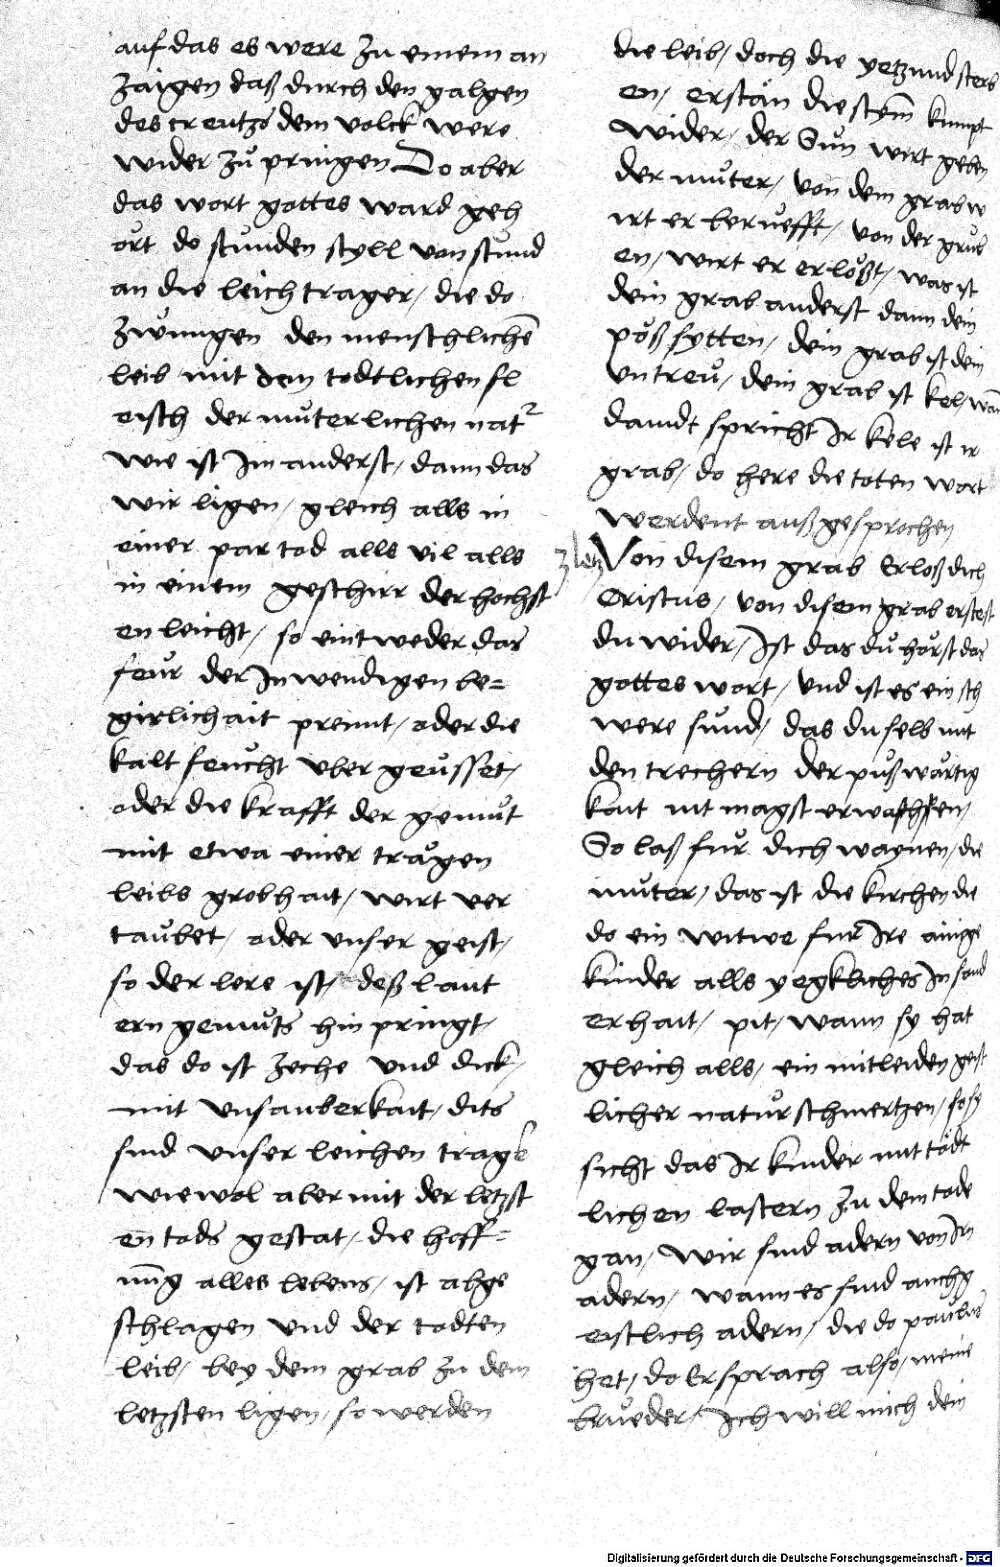 auf das es were zu einem an
zaigen daß durch den galgen
des creutzs dem volck were
wider zů pringen Do aber
das wort gottes ward geh
ört do stunden styll von stund
an die leich trager / die do
zwungen den menschlichē
leib mit dem todtlichen fl
eisch der můterlichen nat²
wie ist Im anderst / dann das
wir ligen / gleich alls in
einer par tod alls vil alls
in einem geschirr der hochst
en leicht / so eintweder das
feůr der Inwendigen be=
girlichait prennt / oder die
kalt feucht vber geůsset /
oder die krafft der gemůt
mit etwa einer trägen
leibs grobhait / wirt ver
taůbet / oder vnser geist /
so der lere ist / deß laut
ern gemüts hin pringt /
das do ist zeche vnd dick /
mit vnsauberkait / dits
sind vnser leichen trage
wiewol aber mit der letzst
en tods gestat / die hoff=
nūg alles lebens / ist abge
schlagen vnd der todten
leib / bey dem grab zu dem
letzsten ligen / so werden
die leib / doch die yetzund sterb
en / erstan die stym kumpt
wider / der Sun wirt geben
der můter / von dem grab w
irt er berüefft / von der grub
en / wirt er erlößt / was ist
dein grab anderst dann dein
pöß sytten / dein grab ist dein
vntreů / dein grab ist kel / wan
damdt spricht Ir kele ist ir
grab / do here die toten wort
werdent außgesprochen
Von disem grab Erloß dich
Cristus / von disem grab erstest
du wider / Ist das dů hörst das
gottes wort / vnd ist es ein sch
were sund / das du selb mit
den trechern der půßwürtig
kait nit magst erwaschen /
So laß für dich waynen / die
můter / das ist die kirchen die
do ein witwe für Ire ainige
kinder alls yegkliches In sond
erhait / pit / wann sy hat
gleich alls / ein mitleiden geist
licher natůr schmertzen / so sy
sicht das Ir kinder mit tödt
lichen lastern zu dem tode
gan / wir sind adern von Irn
adern / wann es sind auch g
eistlich adern / die do paůlus
het / do Er sprach also / meine
brueder / Ich will mich dein